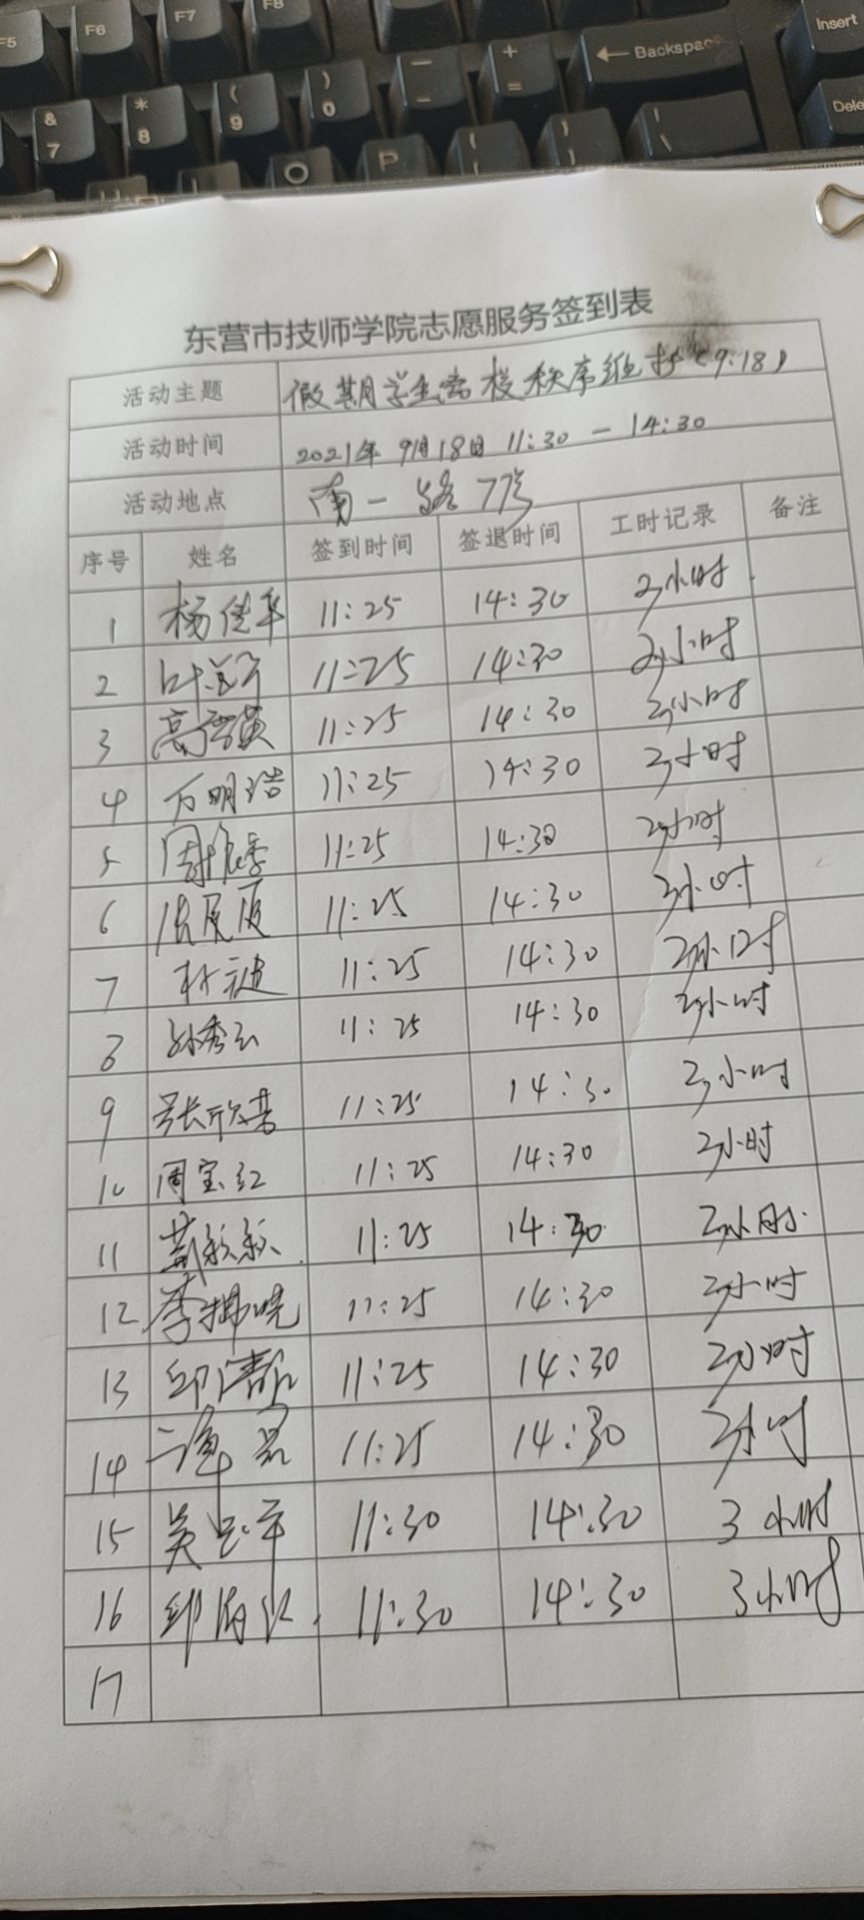 F5 F6 F7 F8
& 7 * 8 ( 9 ) 0 — - + = ← Backspace Insert
O P { [ } ] | \ Dele
东营市技师学院志愿服务签到表
活动主题 假期学生离校秩序维护(9.18)
活动时间 2021年9月18日 11:30 — 14:30
活动地点 南一路77号
序号 姓名 签到时间 签退时间 工时记录 备注
1 杨佳华 11:25 14:30 3小时
2 11:25 14:30 3小时
3 高 11:25 14:30 3小时
4 万明浩 11:25 14:30 3小时
5 周 11:25 14:30 3小时
6 11:25 14:30 3小时
7 11:25 14:30 3小时
8 孙秀 11:25 14:30 3小时
9 张欣 11:25 14:30 3小时
10 周宝红 11:25 14:30 3小时
11 11:25 14:30 3小时
12 李 晓 11:25 14:30 3小时
13 邱 11:25 14:30 3小时
14 11:25 14:30 3小时
15 吴 平 11:30 14:30 3小时
16 11:30 14:30 3小时
17